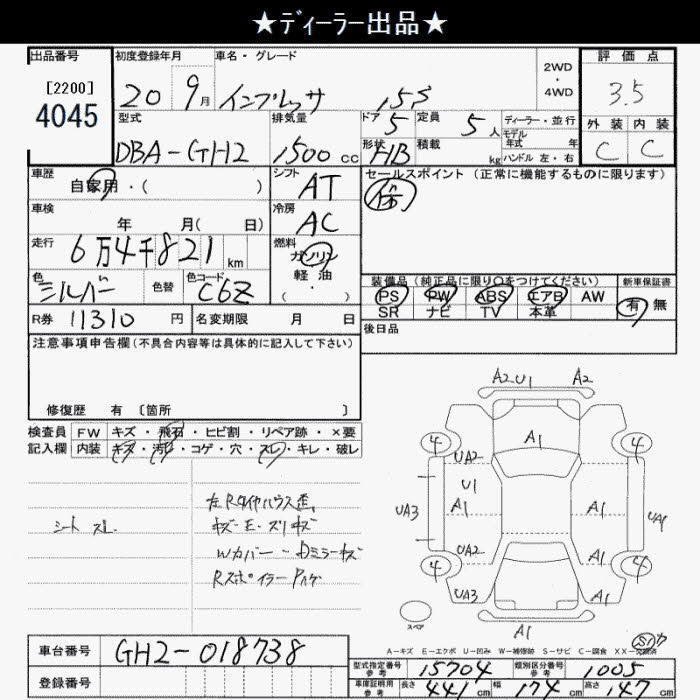 ★ディーラー出品★
出品番号 初度登録年月 車名・グレード 評価点
[2200] 20 9月 インプレッサ 15S 2WD・4WD 3.5
4045
型式 排気量 ドア 定員 ディーラー・並行 外装 内装
DBA-GH2 1500cc 5 5人 モデル年式 年 C C
形状 積載 ハンドル 左・右
HB kg
車歴 自家用・( ) シフト AT セールスポイント(正常に機能するものに限ります)
車検 年 月( 日) 冷房 AC
走行 6万4千821km 燃料 ガソリン 軽油・( )
色 シルバー 色替 色コード C6Z
装備品(純正品に限り○をつけてください) 新車保証書
PS PW ABS エアB AW 有 無
SR ナビ TV 本革
R券 11310円 名変期限 月 日 後日品
注意事項申告欄(不具合内容等は具体的に記入して下さい)
修復歴 有 [箇所 ]
検査員 FW キズ・飛石・ヒビ割・リペア跡・×要
記入欄 内装 キズ・汚れ・コゲ・穴・スレ・キレ・破レ
シート スレ
Wカバー
A2 U1 A2
A1
4 4
UA2
U1
UA3 A1 A1 UA1
UA2 A1
4 4
UA3 A1
スペア A1
A-キズ E-エクボ U-凹み W-補修跡 S-サビ C-腐食 XX-交換済
車台番号 GH2-018738 型式指定番号 参考 15704 類別区分番号 参考 1005
登録番号 車庫証明用 参考 長さ 441cm 幅 174cm 高さ 147cm